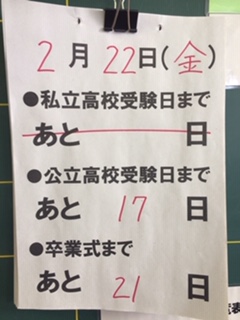 2月22日(金)
●私立高校受験日まで
あと 日
●公立高校受験日まで
あと 17 日
●卒業式まで
あと 21 日